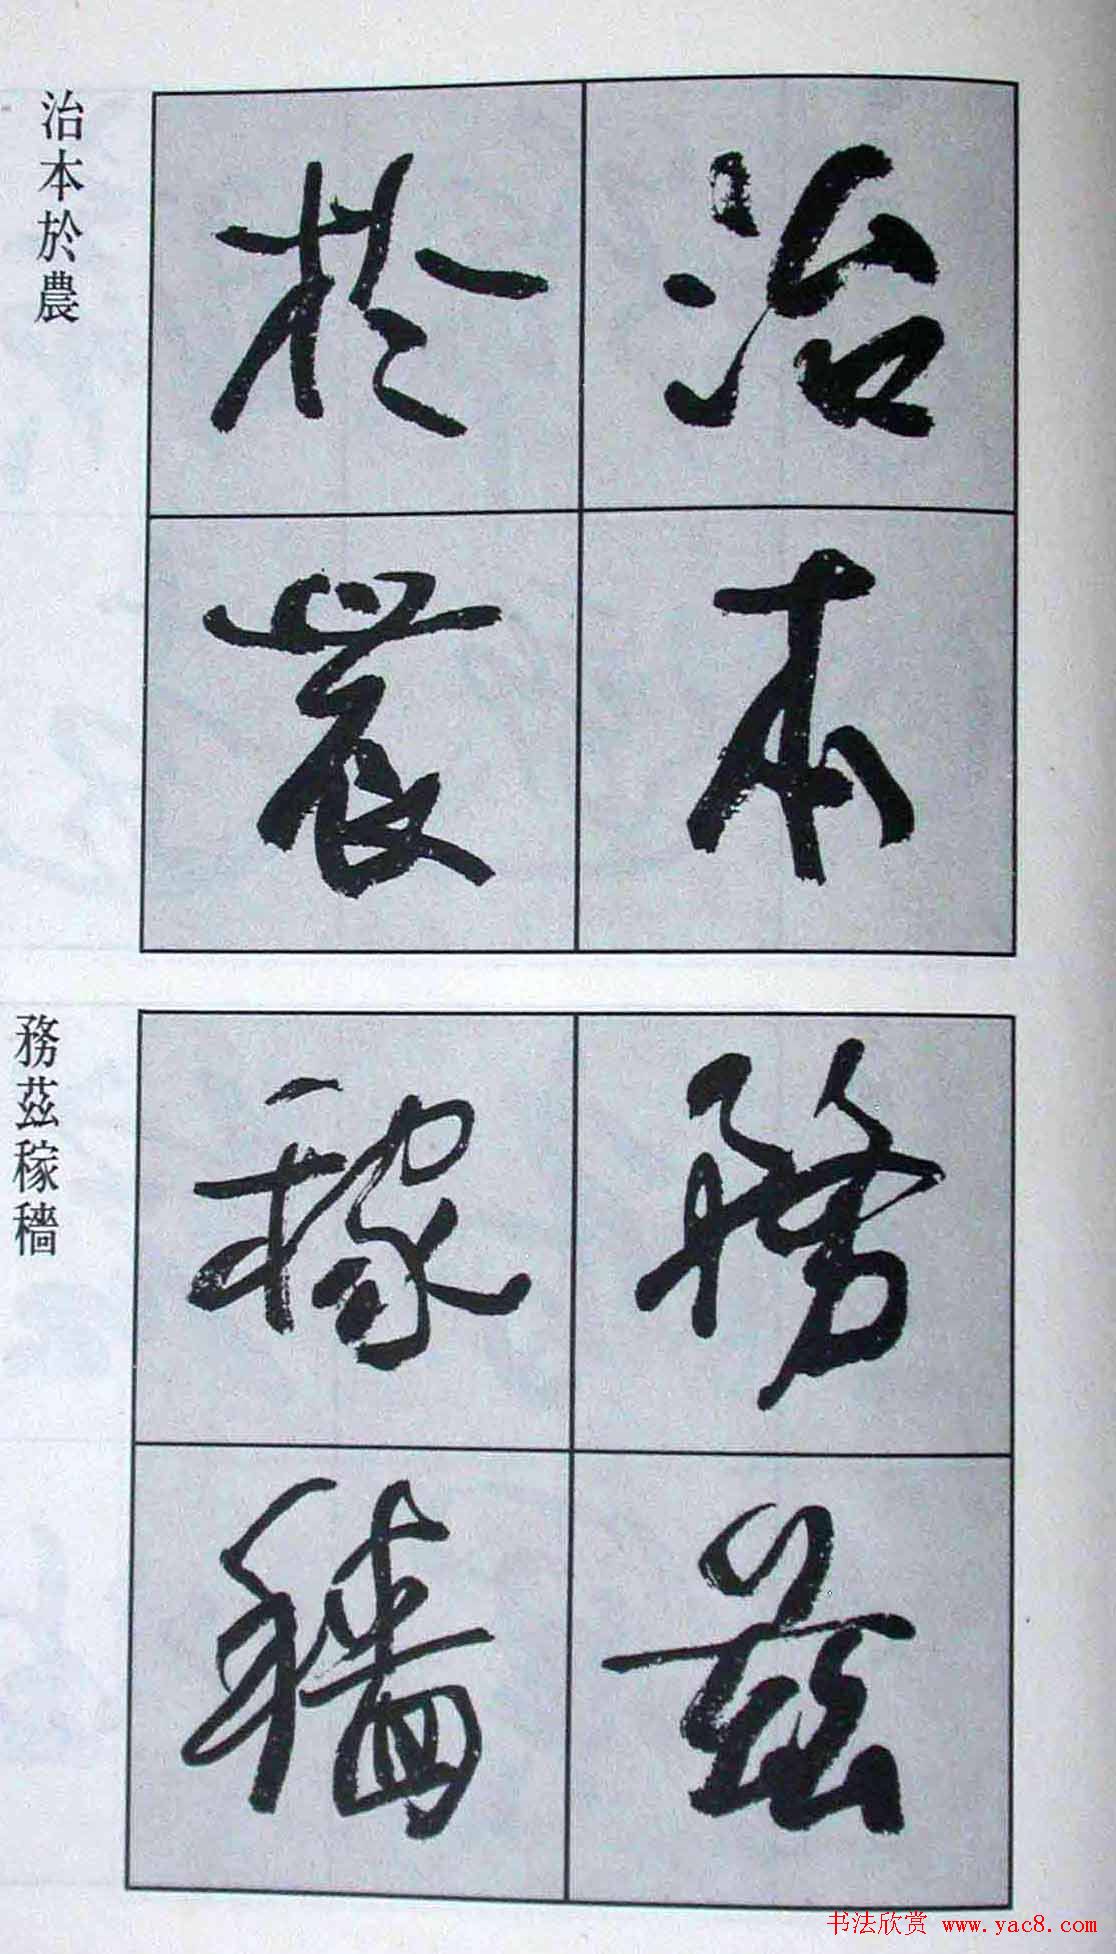 治本於農
治本
於農
務茲稼穡
務茲
稼穡
书法欣赏 www.yac8.com